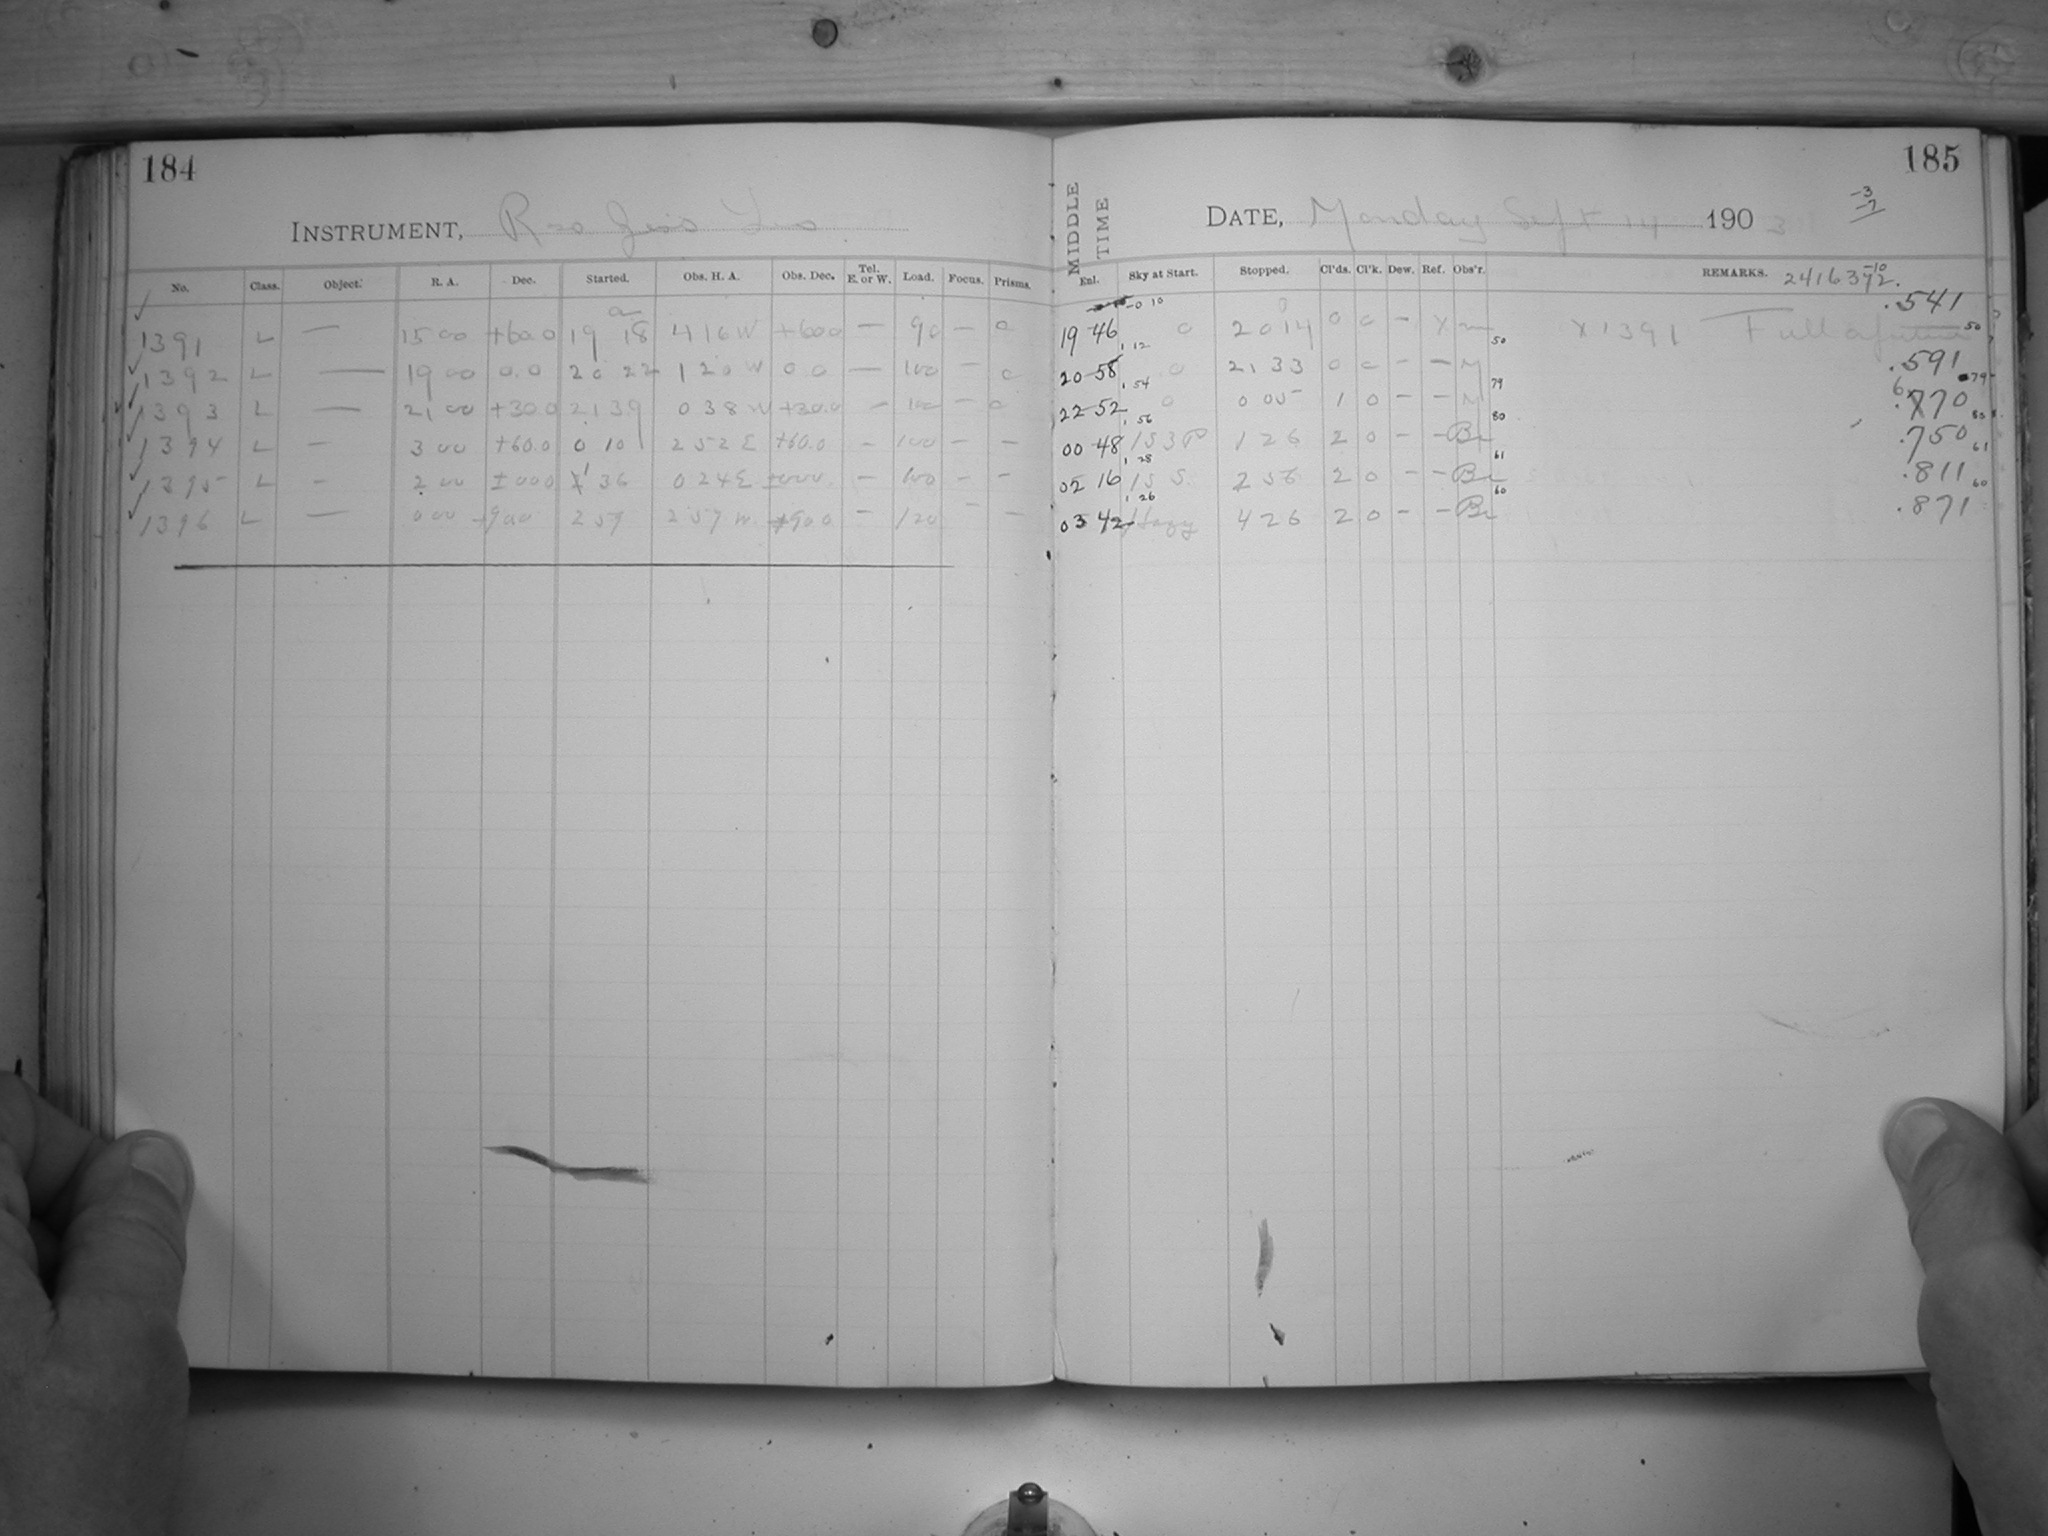 184
INSTRUMENT,
No. Class. Object. R. A. Dec. Started. Obs. H. A. Obs. Dec. Tel. E. or W. Load. Focus. Prisms.
1391 L — 15 00 +60.0 19 18 4 16 W +60.0 — 90 — 0
1392 L — 19 00 0.0 20 22 1 20 W 0.0 — 100 — 0
1393 L — 21 00 +30.0 21 39 0 38 W +30.0 — 100 — 0
1394 L — 3 00 +60.0 0 10 2 52 E +60.0 — 100 — —
1395 L — 2 00 ±000 1 36 0 24 E ±000 — 100 — —
1396 L — 0 00 +900 2 59 2 59 W +900 — 120 — —
185
MIDDLE TIME
DATE, Monday Sept 14 1903
-3
-7
-10
Enl. Sky at Start. Stopped. Cl'ds. Cl'k. Dew. Ref. Obs'r. REMARKS. 2416372.
19 46 0 20 14 0 0 — X M X 1391 Full of .541
1 12 50 50
20 58 0 21 33 0 0 — — M .591
1 54 79 79
22 52 0 0 05 1 0 — — M .670
1 56 80 80
00 48 1 26 2 0 — — Br .750
1 28 61 61
02 16 15 S. 2 56 2 0 — — Br .811
1 26 60 60
03 42 Hazy 4 26 2 0 — — Br .871